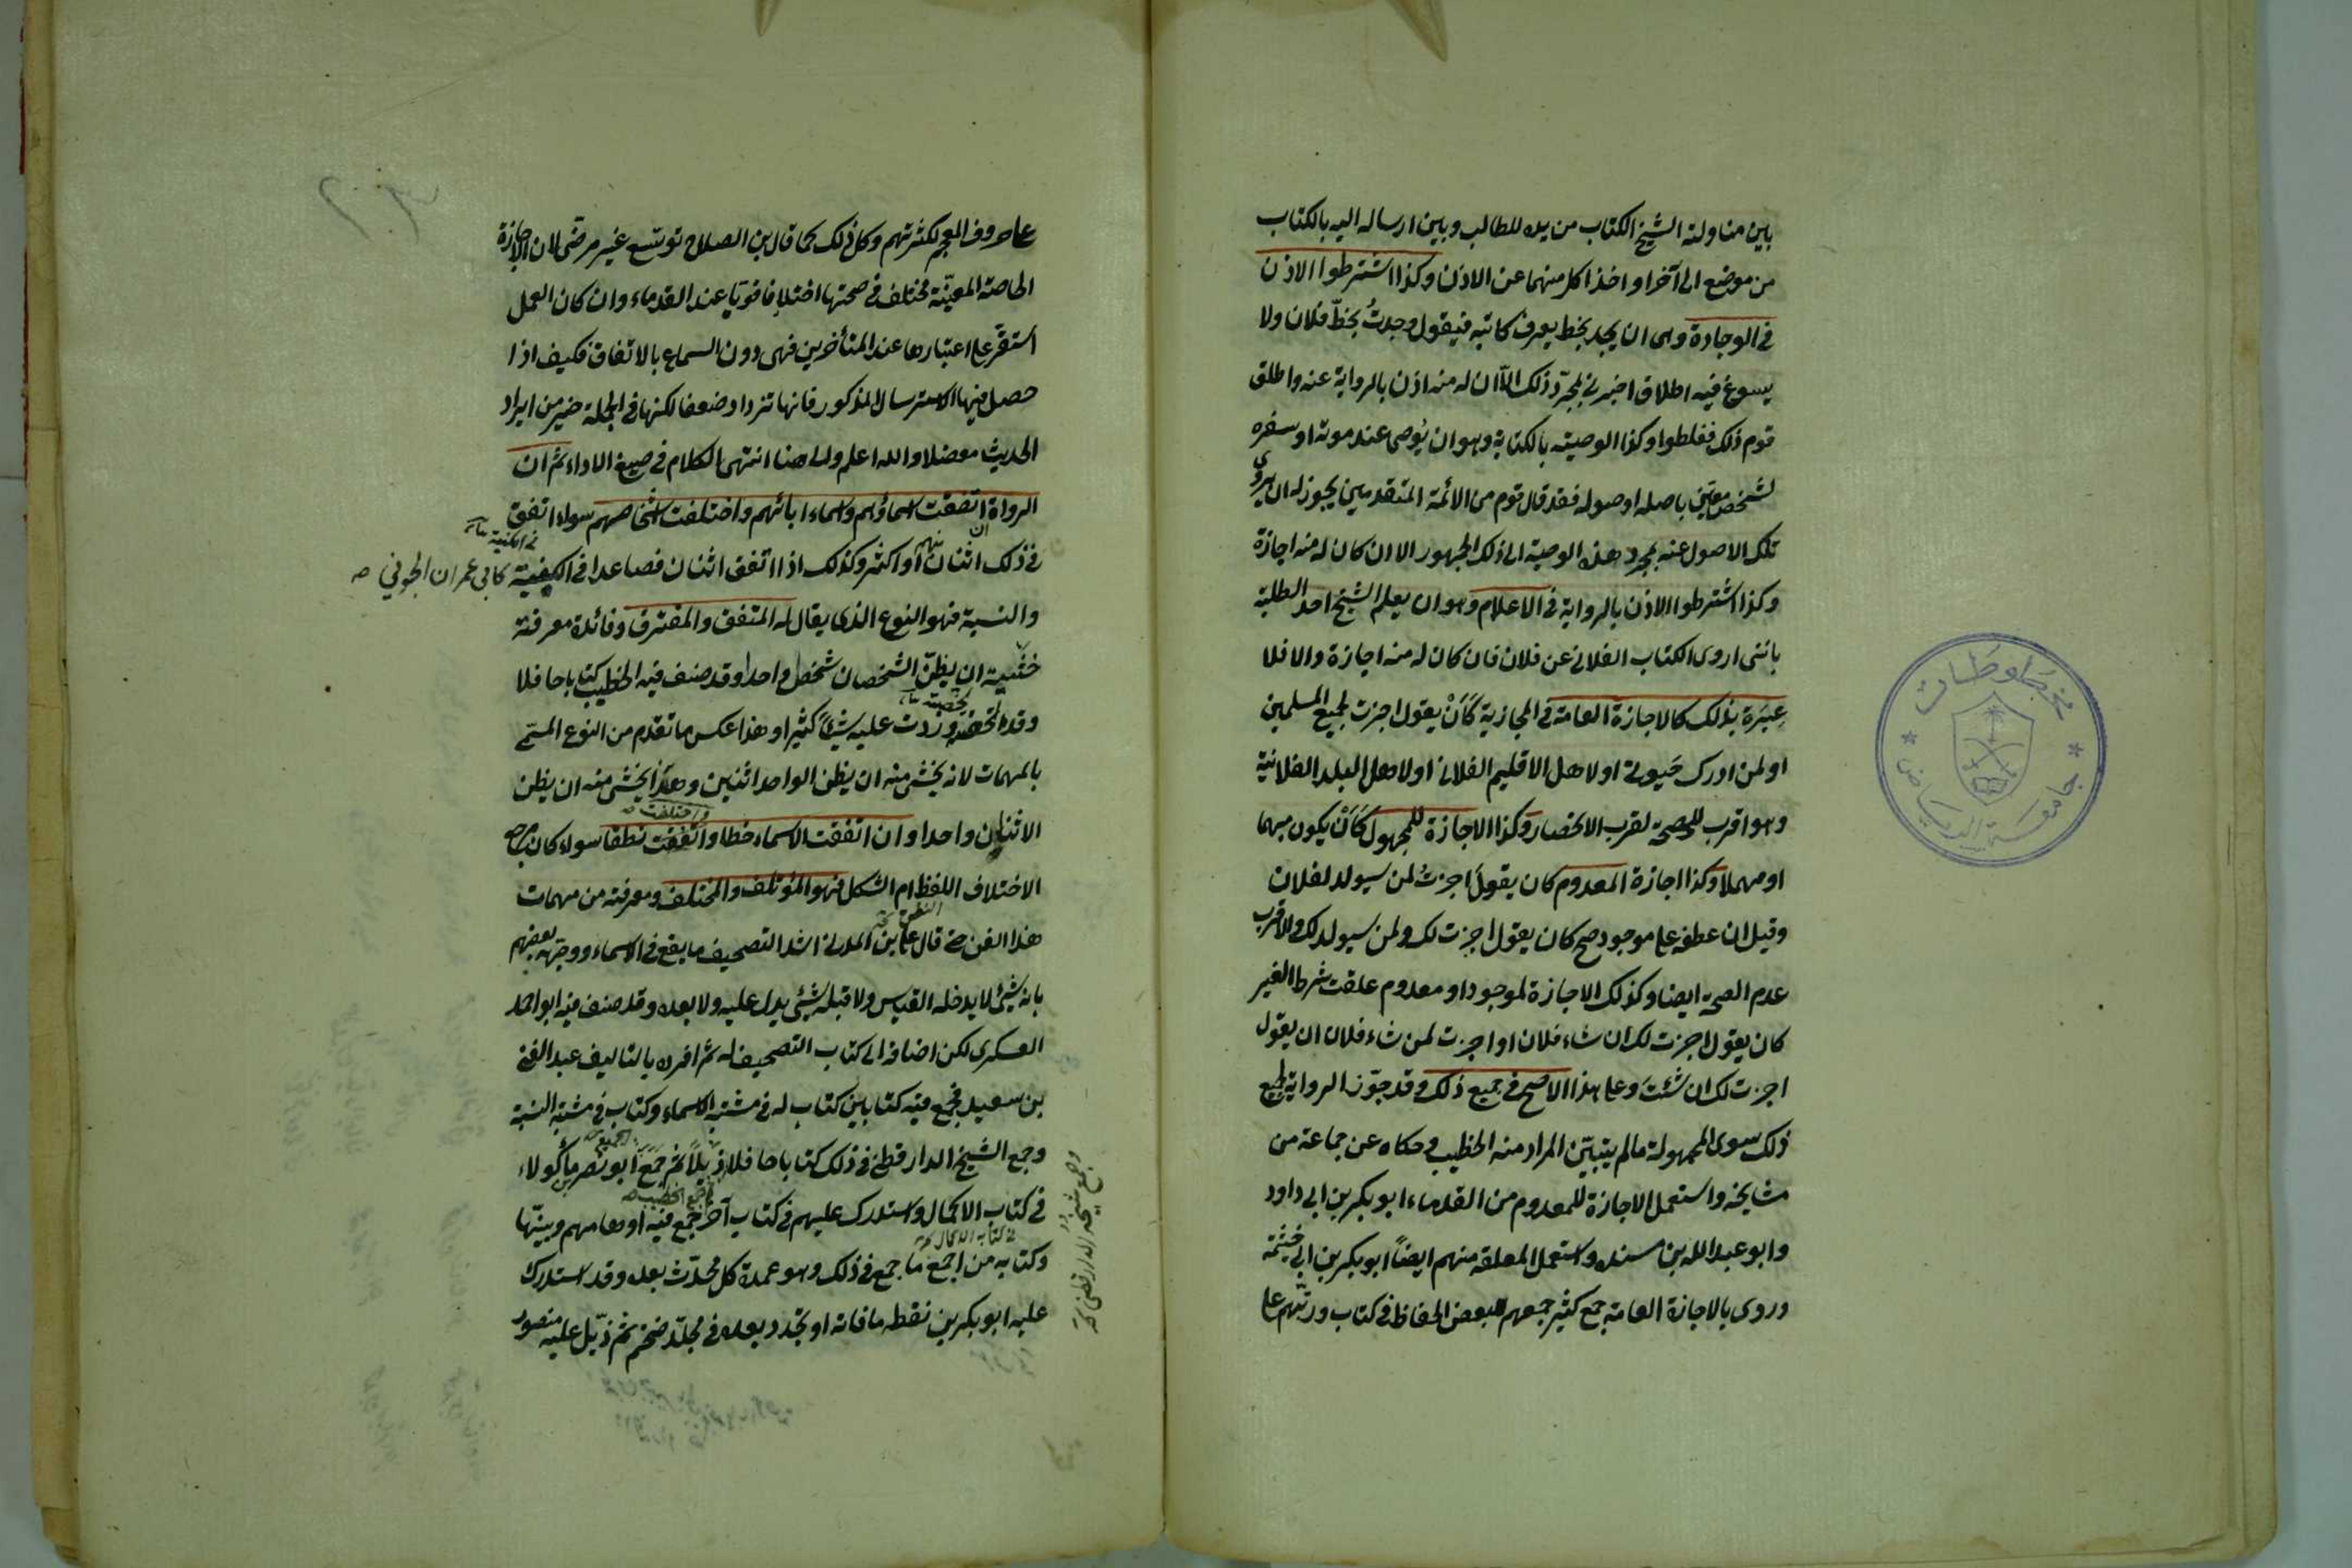 بين مناولته الشيخ الكتاب من يده للطالب وبين ارساله اليه بالكتاب
من موضع الى آخر اذا خلا كل منهما عن الاذن وكذا اشترطوا الاذن
في الوجادة وهي ان يجد بخط يعرف كاتبه فيقول وجدتُ بخطّ فلان ولا
يسوغ فيه اطلاق اخبرني بمجرّد ذلك الاّ ان له منه اذن بالرواية عنه واطلق
قوم ذلك فغلطوا وكذا الوصية بالكتابة وهو ان يُوصى عند موته او سفره
لشخص معيّن باصله او صوله فقد قال قوم من الائمة المتقدمين يجوز له ان يروي
تلك الاصول عنه بمجرد هذه الوصية الى ذلك الجمهور الا ان كان له منه اجازة
وكذا اشترطوا الاذن بالرواية في الاعلام وهو ان يعلم الشيخ احد الطلبة
بانني اروى الكتاب الفلاني عن فلان فان كان له منه اجازة والا فلا
عِبَرة بذلك كالاجازة العامة في المجازية كَأَنْ يقول اجزت لجميع المسلمين
او لمن ادرك حَيوتي او لاهل الاقليم الفلاني او لاهل البلد الفلانية
وهو اقرب للصحة لقرب الانحصار وكذا الاجازة للمجهول كَأَنْ يكون مبهما
او مهملا وكذا اجازة المعدوم كان يقولَ اجزتُ لمن سيولد لفلان
وقيل ان عطفه على موجود صح كان يقول اجزت لك ولمن سيولد لك والاقرب
عدم الصحة ايضا وكذلك الاجازة لموجود او معدوم علقت شرط الغير
كان يقول اجزت لك ان شاء فلان او اجزت لمن شاء فلان ان يقول
اجزت لك ان شئتَ وعلى هذا الاصح في جميع ذلك وقد جوّز الرواية لجميع
ذلك سوى المجهولة مالم يتبيّن المراد منه الخطيب وحكاه عن جماعة من
مشايخه واستعمل الاجازة للمعدوم من القدماء ابو بكر بن ابي داود
وابو عبد الله بن مسنده واستعمل المعلقه منهم ايضاً ابو بكر بن ابي خيثمة
وروى بالاجازة العامة جمع كثير جمعهم بعض الحفاظ في كتاب ورتبّهم على
على حروف المعجم لكثرتهم وكل ذلك كما قال بن الصلاح توسّع غير مرضي لان الاجازة
الخاصة المعيّنة مختلف في صحتها اختلافا قويّا عند القدماء وان كان العمل
استقرّ على اعتبارها عند المتأخرين فهي دون السماع بالاتفاق فكيف اذا
حصل فيها الاسترسال المذكور فانها تزداد ضعفا لكنها في الجملة خير من ايراد
الحديث معضلا والله اعلم والى هنا انتهى الكلام في صيغ الاداء ثم ان
الرواة ان اتفقت اسماؤهم واسماء ابائهم واختلفت اشخاصهم سواء اتفق
في ذلك اثنان منهم او اكثر وكذلك اذا اتفق اثنان فصاعدا في الكنية كابي عمران الجوني صه
والنسبة فهو النوع الذي يقال له المتفق والمفترق وفائدة معرفته
خشية ان يظنّ الشخصان شخصا واحدا وقد صنف فيه الخطيب كتابا حافلا
وقد لخصته وزدت عليه شيئاً كثيرا وهذا عكس ما تقدم من النوع المسمّى
بالمهمات لانه يخشى منه ان يظن الواحد اثنين وهذا يخشى منه ان يظن
الاثنان واحدا وان اتفقت الاسماء خطا واختلفت نطقا سواء كان مرجع
الاختلاف اللفظ ام الشكل فهو المؤتلف والمختلف ومعرفته من مهمات
هذا الفن حتى قال على بن المديني اشد التصحيف ما يقع في الاسماء ووجّهه بعضهم
بانه شيئ لا يدخله القياس ولا قبله شيئ يدل عليه ولا بعده وقد صنف فيه ابو احمد
العسكري لكن اضافه الى كتاب التصحيف له ثم افرده بالتاليف عبد الغني
بن سعيد فجمع فيه كتابين كتاب له في مشتبه الاسماء وكتاب في مشتبه النسبة
وجمع الشيخ الدارقطني في ذلك كتابا حافلا ذيلاً ثم جَمَعَ ابو نصر بن ماكولاء
في كتاب الاكمال واستدرك عليهم في كتاب آخر جمع فيه اوهامهم وبيّنها
وكتابه من اجمع ما جمع في ذلك وهو عمدة كل محدّث بعده وقد استدرك
عليه ابو بكر بن نقطه ما فاته او تجدّد بعده في مجلّد ضخم ثم ذيّل عليه منصور
وجمع شيخه الدارقطني
مخطوطات
جامعة الرياض